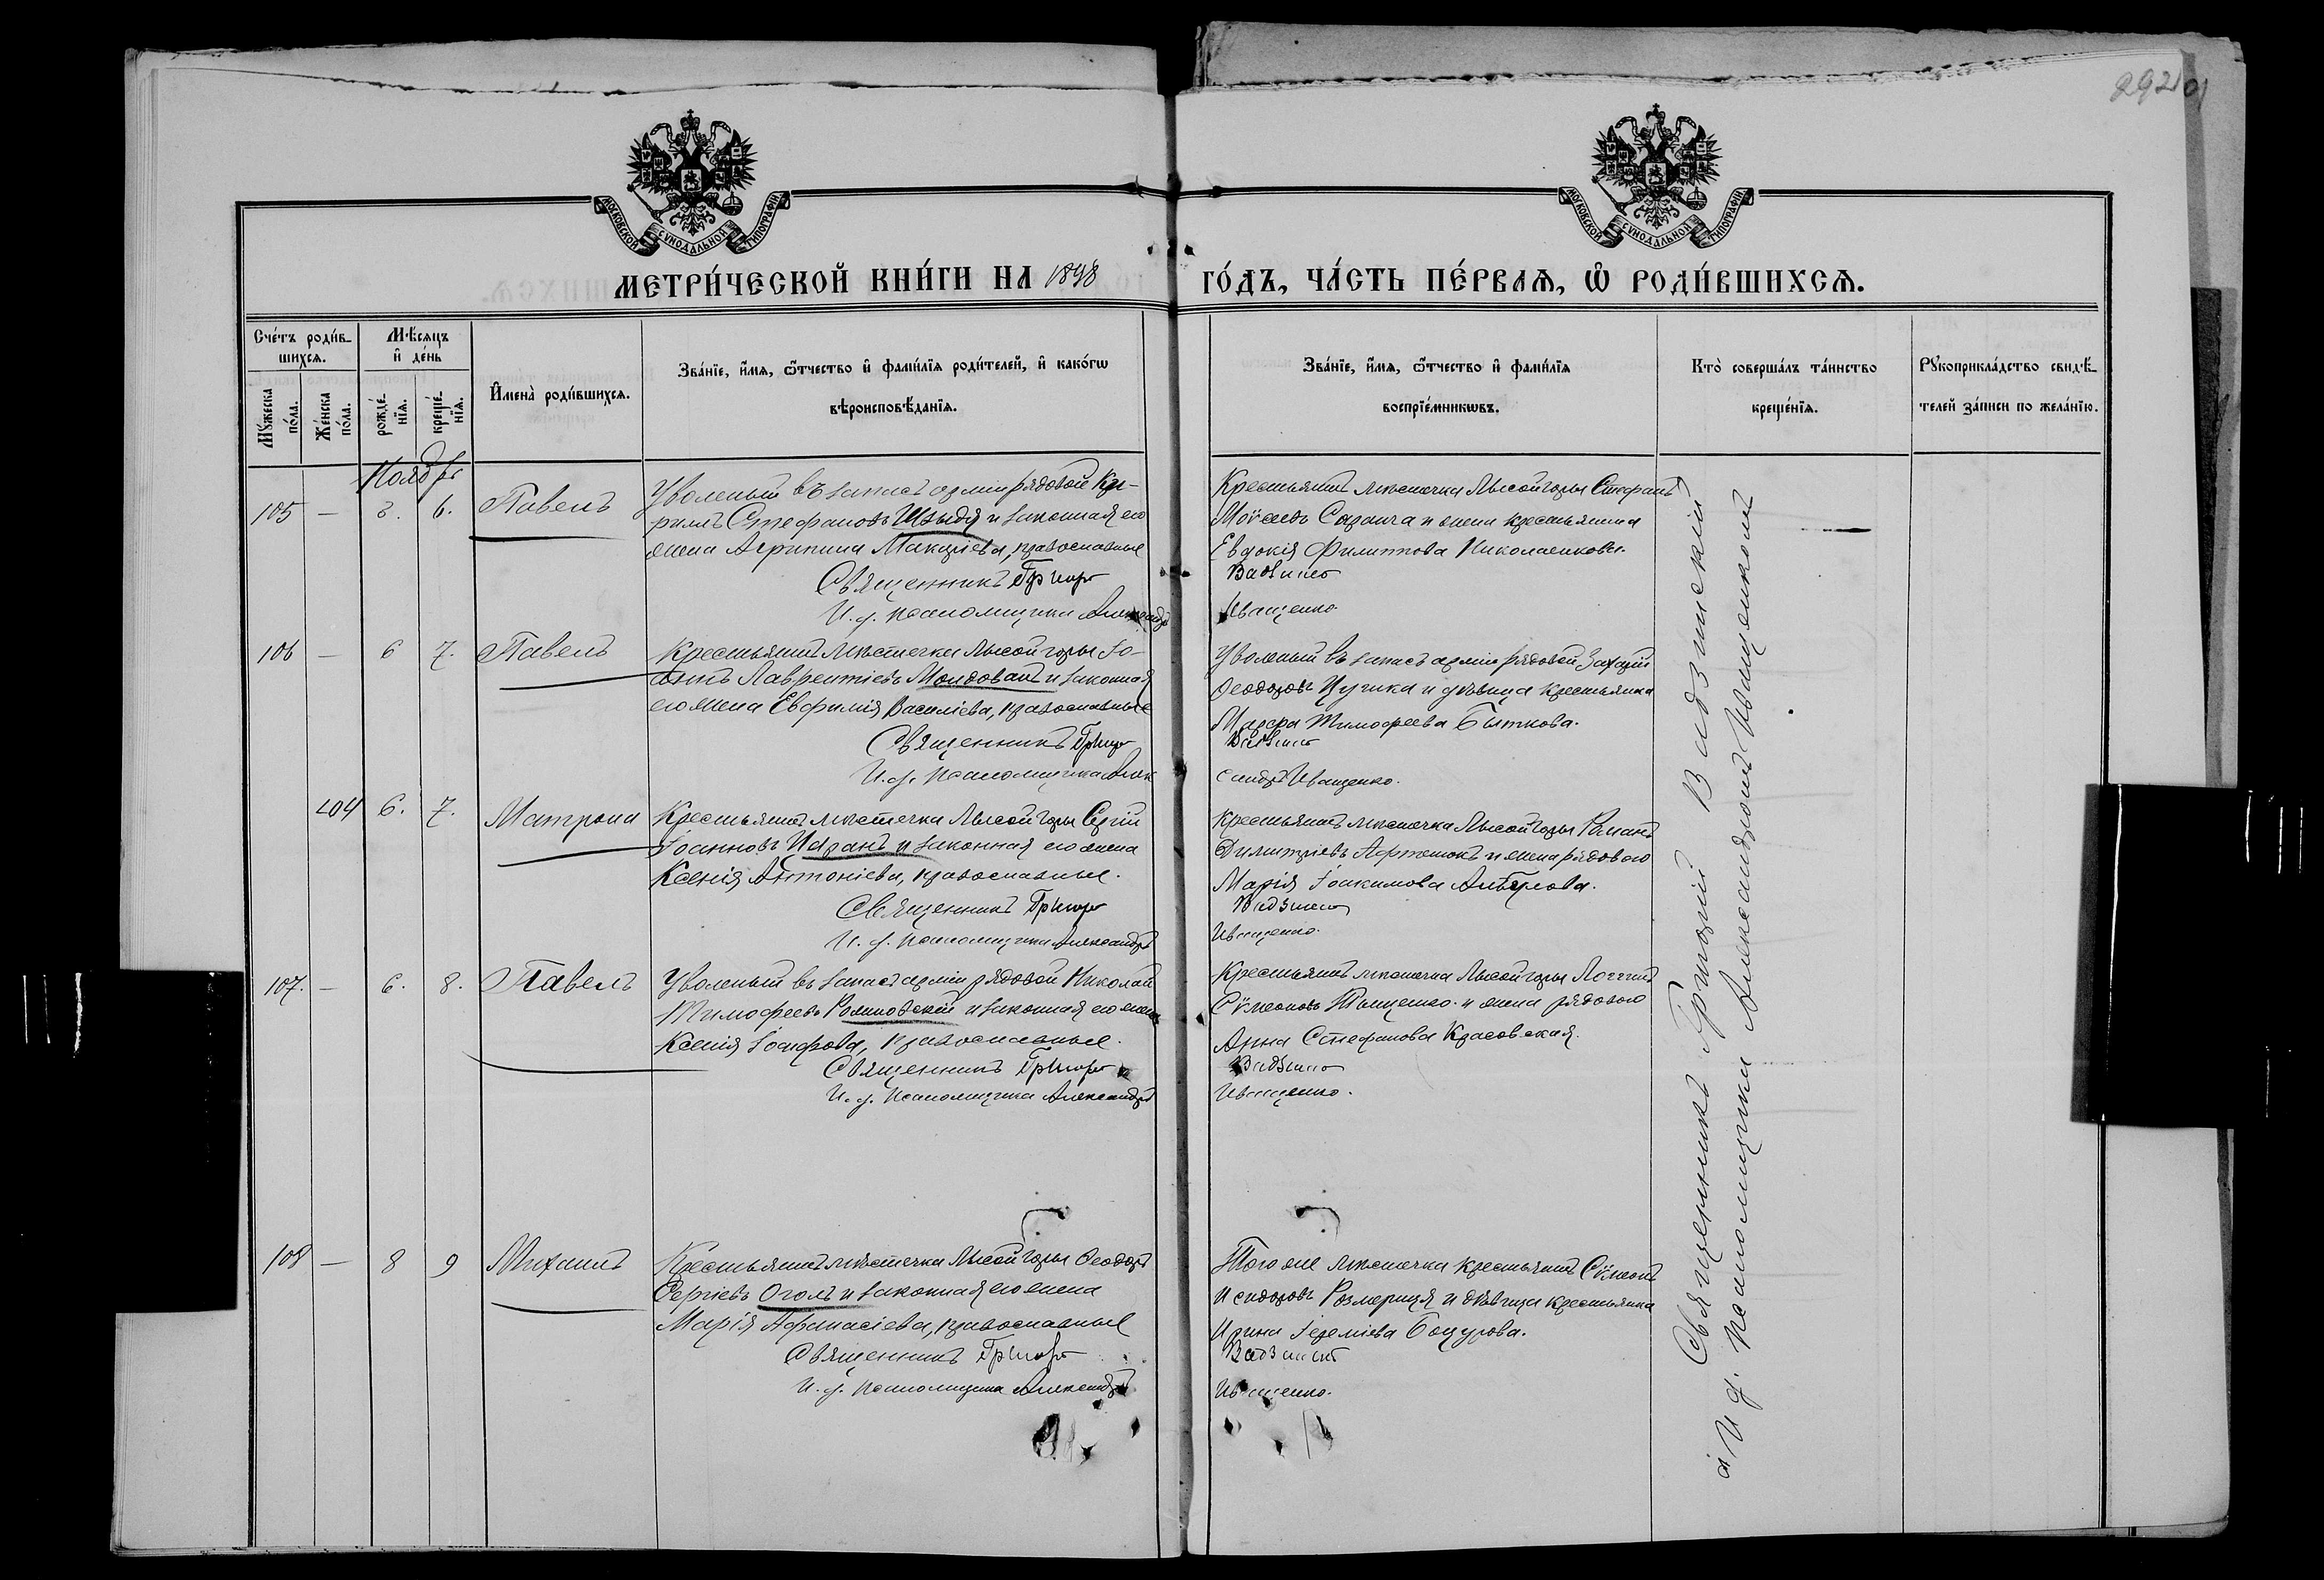 292
МОСКОВСКОЙ СУНОДАЛЬНОЙ ТИПОГРАФІИ
МОСКОВСКОЙ СУНОДАЛЬНОЙ ТИПОГРАФІИ
МЕТРИ́ЧЕСКОЙ КНИ́ГИ НА 1898 ГО́ДЪ, ЧА́СТЬ ПЕ́РВАѦ, Ѽ РОДИ́ВШИХСѦ.
Сче́тъ роди́в-
шихсѧ.
Мѣ́сѧцъ
и҆ де́нь
Му́жеска
по́ла.
Же́нска
по́ла.
рожде́-
нїѧ.
креще́-
нїѧ.
И҆мена̀ роди́вшихсѧ.
Зва́нїе, и҆́мѧ, ѻ҆́тчество и҆ фамилїѧ роди́телей, и҆ како́гѡ
вѣроисповѣ́данїѧ.
Зва́нїе, и҆́мѧ, ѻ҆́тчество и҆ фами́лїѧ
воспрїе́мникѡвъ.
Кто̀ соверша́лъ та́инство
креще́нїѧ.
Рꙋкоприкла́дство свидѣ́-
телей за́писи по жела́нїю.
Ноябрь
105 — 3. 6. Павелъ
Уволеный въ запасъ арміи рядовой Ки-
риллъ Стефановъ Швыдя и законная его
жена Агрипина Макаріева, православные
Священникъ Григор
И. д. псаломщика Александръ
Крестьянинъ мѣстечка Лысойгоры Стефанъ
Моѵсеевъ Саранча и жена крестьянина
Евдокія Филиппова Николаенкова.
Вадзинс
Иващенко.
106 — 6 7. Павелъ
Крестьянинъ мѣстечка Лысой горы Іо-
аннъ Лаврентіевъ Молдованъ и законная
его жена Евфимія Василіева, православные
Священникъ Григор
И. д. псаломщика Алек
Уволеный въ запасъ арміи рядовой Захарій
Ѳеодоровъ Цугика и дѣвица крестьянка
Марѳа Тимофеева Быткова.
Вадзинс
сандръ Иващенко.
104 6. 7. Матрона
Крестьянинъ мѣстечка Лысойгоры Сергій
Іоанновъ Царанъ и законная его жена
Ксенія Антоніева, православные.
Священникъ Григор
И. д. псаломщика Александръ
Крестьянинъ мѣстечка Лысойгоры Романъ
Димитріевъ и жена рядового
Марія Іоакимова
Вадзинс
Иващенко.
107. — 6. 8. Павелъ
Уволеный въ запасъ арміи рядовой Николай
Тимофеевъ Романовскій и законная его жена
Ксенія Іосифова, православные.
Священникъ Григор
И. д. псаломщика Александръ
Крестьянинъ мѣстечка Лысойгоры Логгинъ
Сѵмеоновъ Тыщенко и жена рядового
Анна Стефанова Красовская.
Вадзинс
Иващенко.
108 — 8 9 Михаилъ
Крестьянинъ мѣстечка Лысойгоры Ѳеодоръ
Сергіевъ Оголь и законная его жена
Марія Афанасіева, православные
Священникъ Григор
И. д. псаломщика Александръ
Того же мѣстечка крестьянинъ Сѵмеонъ
Исидоровъ Розмерица и дѣвица крестьянка
Ирина Іереміева Боцурова.
Вадзинс
Иващенко.
Священникъ Григорій Вадзинскій
и И д. псаломщика Александръ Иващенко